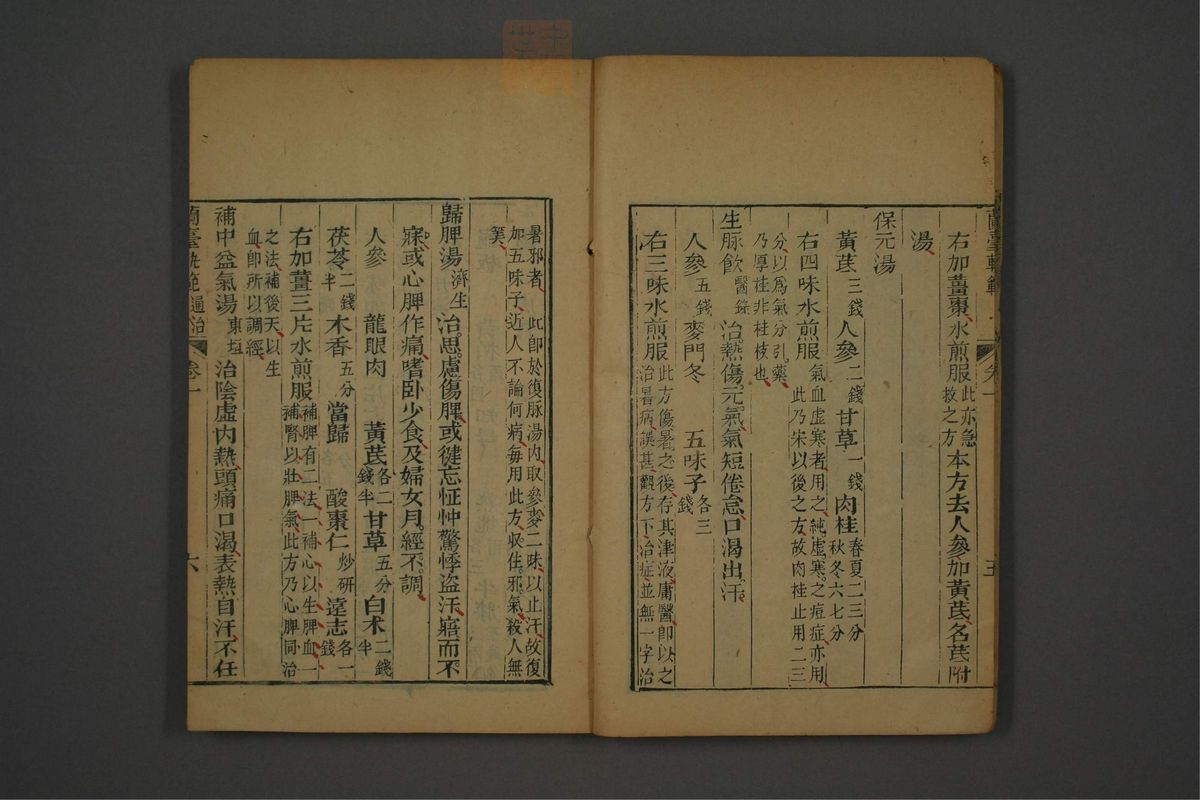 蘭臺軌範
卷一
五
右加薑棗水煎服此亦急救之方本方去人參加黃芪名芪附
湯
保元湯
黃芪三錢人參二錢甘草一錢肉桂春夏二三分秋冬六七分
右四味水煎服氣血虛寒者用之純虛寒之痘症亦用此乃宋以後之方故肉桂止用二三
分以爲氣分引藥乃厚桂非桂枝也
生脉飲醫錄治熱傷元氣氣短倦怠口渴出汗
人參五錢麥門冬五味子各三錢
右三味水煎服此方傷暑之後存其津液庸醫即以之治暑病誤甚觀方下治症並無一字治
暑邪者此即於復脉湯內取參麥二味以止汗故復加五味子近人不論何病每用此方収住邪氣殺人無
筭
歸脾湯濟生治思慮傷脾或徤忘怔忡驚悸盜汗寤而不
寐或心脾作痛嗜卧少食及婦女月經不調
人參龍眼肉黃芪各二錢半甘草五分白术二錢半
茯苓二錢半木香五分當歸酸棗仁炒研遠志各一錢
右加薑三片水煎服補脾有二法一補心以生脾血一補腎以壯脾氣此方乃心脾同治
之法補後天以生血即所以調經
補中益氣湯東垣治陰虛內熱頭痛口渴表熱自汗不任
蘭臺軌範
通治
卷一
六